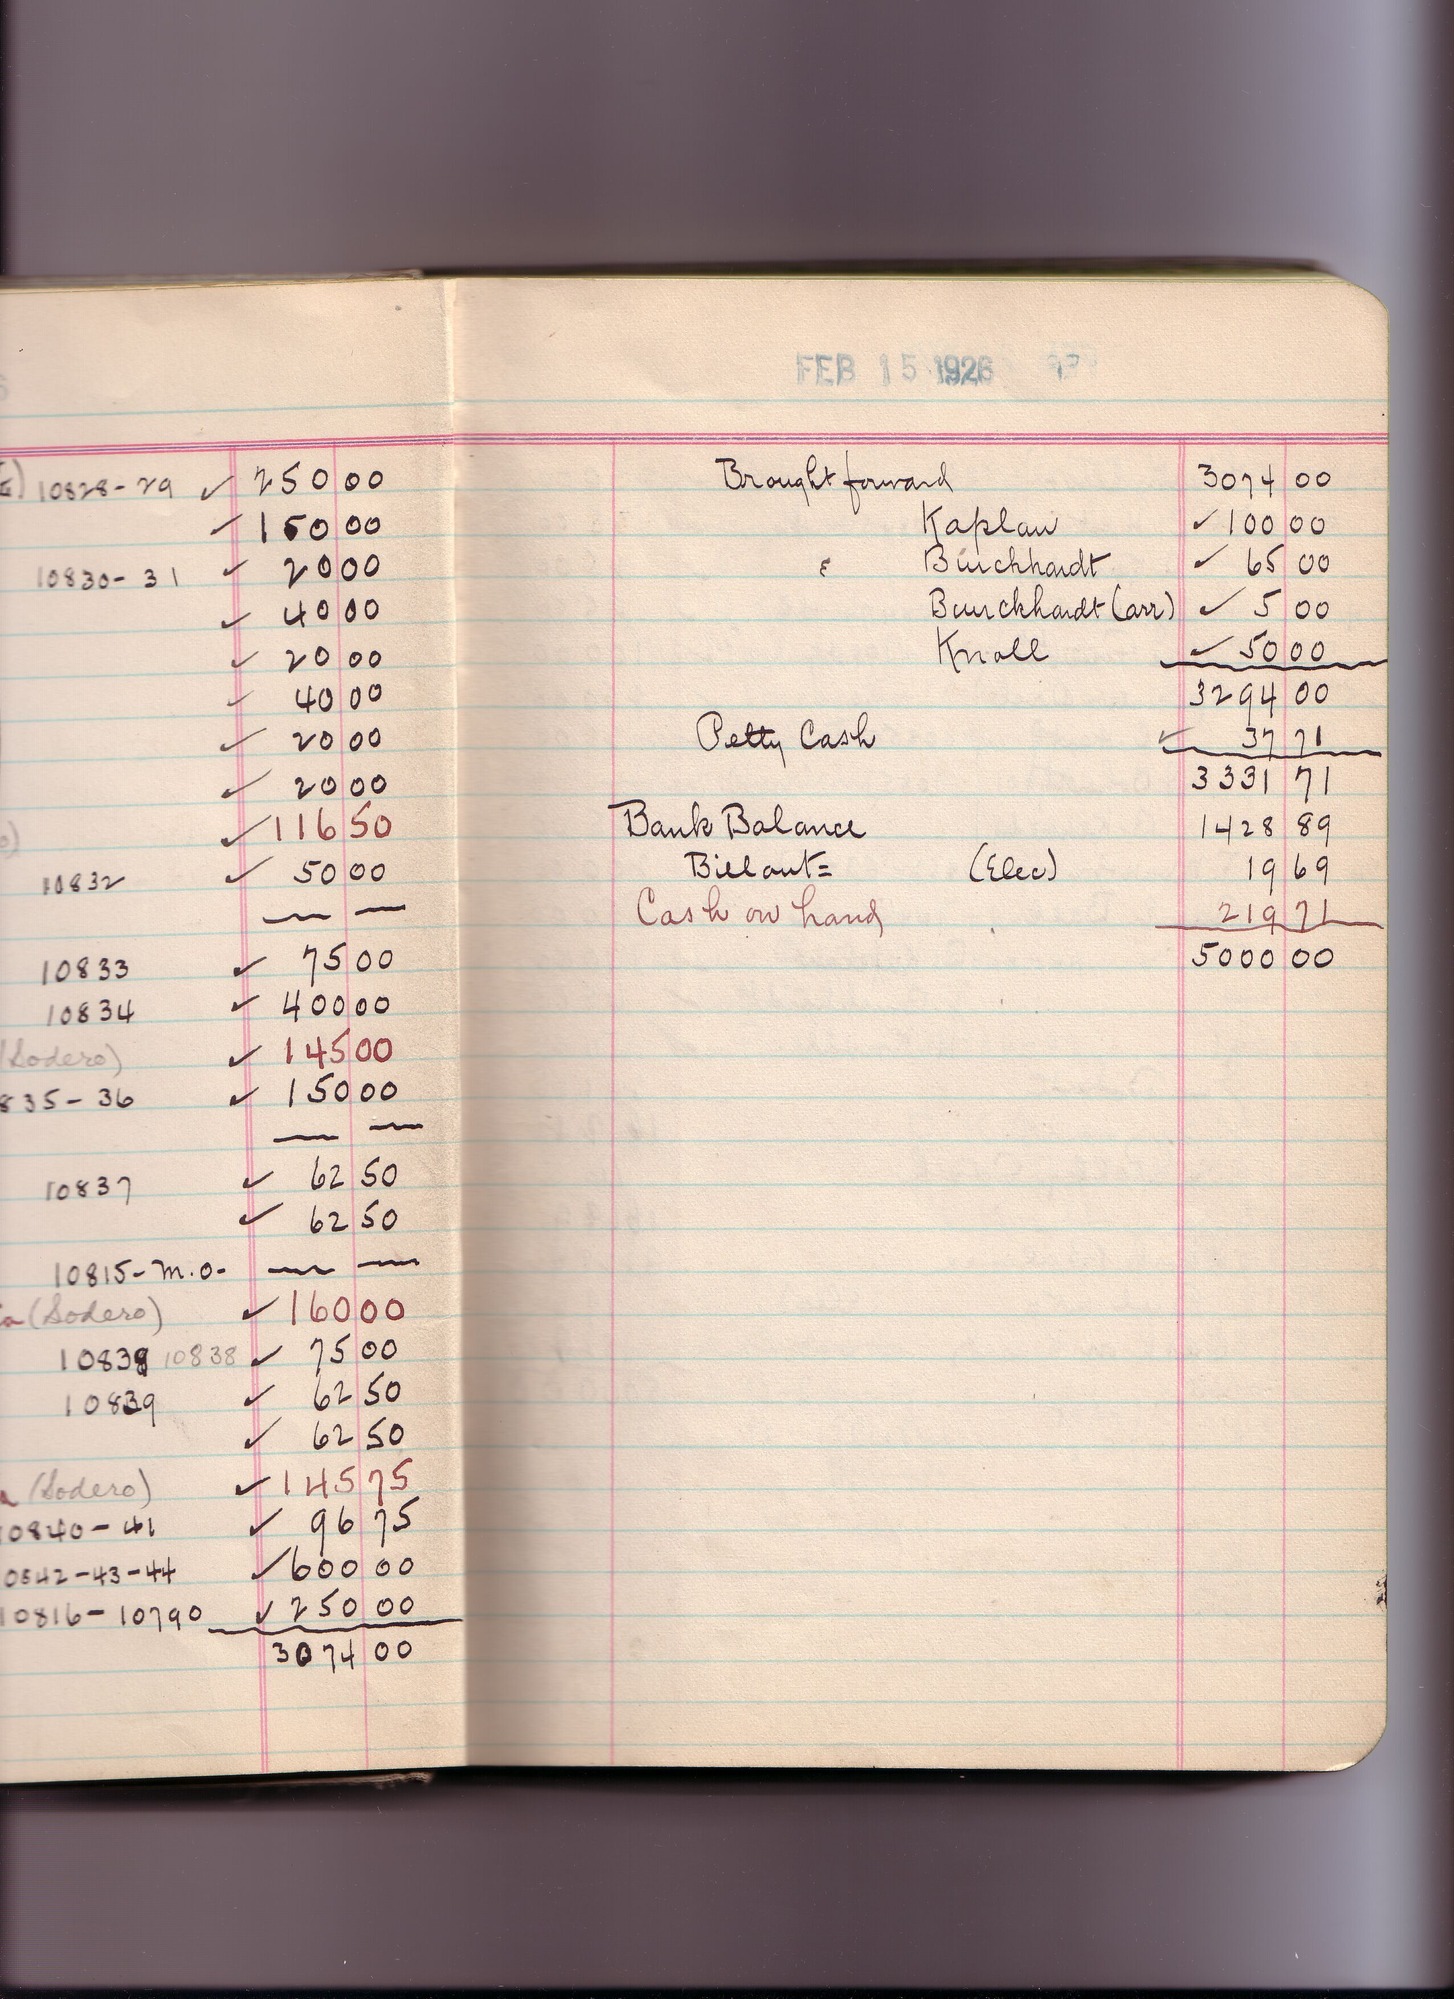 10828-29 ✓ 250 00
✓ 150 00
10830-31 ✓ 20 00
✓ 40 00
✓ 20 00
✓ 40 00
✓ 20 00
✓ 20 00
✓ 116 50
10832 ✓ 50 00
— —
10833 ✓ 75 00
10834 ✓ 400 00
(Sodero) ✓ 145 00
835-36 ✓ 150 00
— —
10837 ✓ 62 50
✓ 62 50
10815-M.O- — —
(Sodero) ✓ 160 00
10838 10838 ✓ 75 00
10839 ✓ 62 50
✓ 62 50
(Sodero) ✓ 145 75
10840-41 ✓ 96 75
10842-43-44 ✓ 600 00
10816-10790 ✓ 250 00
3074 00
FEB 15 1926
Brought forward 3074 00
Kaplan ✓ 100 00
Burckhardt ✓ 65 00
Burckhardt (arr) ✓ 5 00
Knoll ✓ 50 00
3294 00
Petty Cash ✓ 37 71
3331 71
Bank Balance 1428 89
Bill out= (Elec) 19 69
Cash on hand 219 71
5000 00